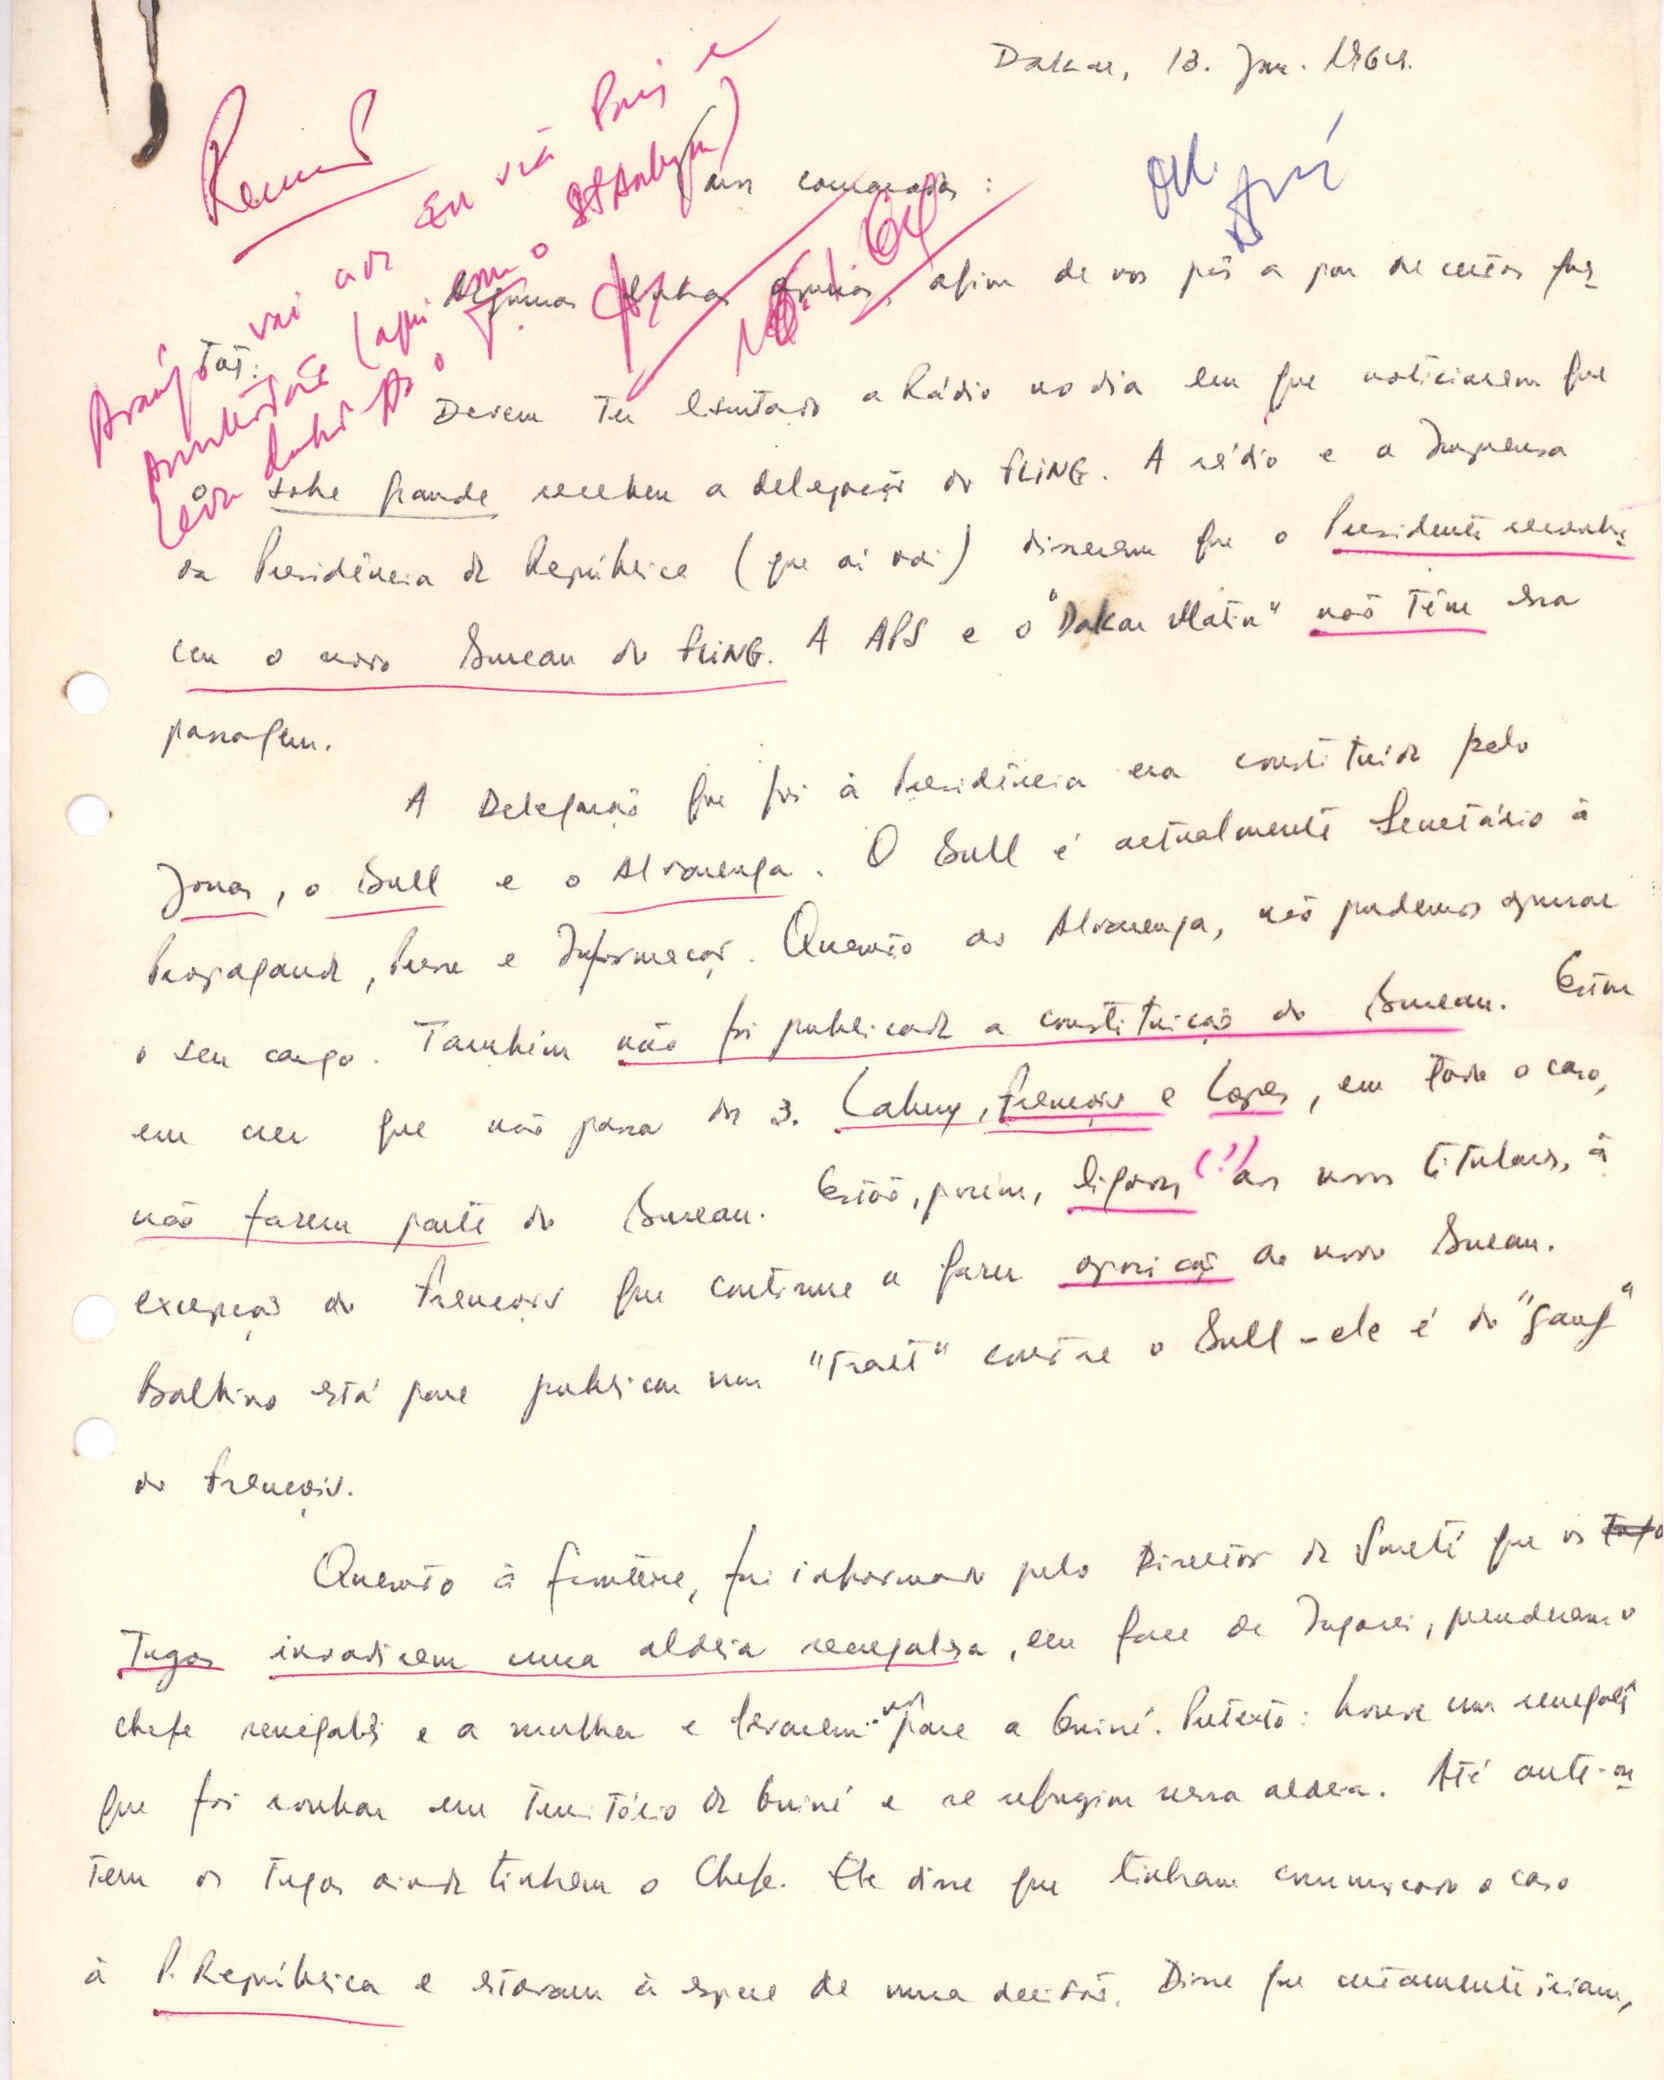 Dakar, 13. Jan. 1964.
Caros camaradas:
Algumas linhas apenas, afim de vos pôr a par de certos ques
tões.
Devem ter escutado a Rádio no dia em que noticiaram que
o sobe grande recebeu a delegação do FLING. A rádio e a Imprensa
da Presidência da República (que aí vai) disseram que o Presidente reconhe
ceu o novo Bureau do FLING. A APS e o "Dakar Matin" não têm essa
passagem.
A Delegação que foi à Presidência era constituída pelo
Jonas, o Bull e o Alvarenga. O Bull é actualmente Secretário à
Propaganda, Presse e Informação. Quanto ao Alvarenga, não pudemos apurar
o seu cargo. Também não foi publicada a constituição do Bureau. Estou
em crer que não passa de 3. Labery, François e Lopes, em todo o caso,
não fazem parte do Bureau. Estão, porém, ligados (?) aos novos titulares, à
excepção do François que continua a fazer oposição ao novo Bureau.
Balbino está para publicar um "tract" contra o Bull - ele é do "gang"
do François.
Quanto à fronteira, fui informado pelo Director da Sureté que os
Tugas invadiram uma aldeia senegalesa, em face de Ingorei, prenderam o
chefe senegalês e a mulher e levaram-nos para a Guiné. Pretexto: houve um senegalês
que foi roubar em território da Guiné e se refugiou nessa aldeia. Até ante-on
tem os tugas ainda tinham o Chefe. Ele disse que tinham comunicado o caso
à P. República e estavam à espera de uma decisão. Disse que certamente iriam,